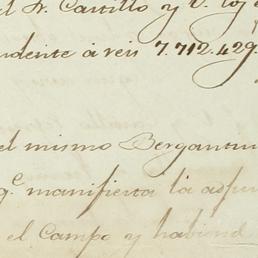 el Sr. Castillo y V.
ndente à reis 7.712.429
el mismo Bergantin
q.e manifiesta la
el Campo y habiend